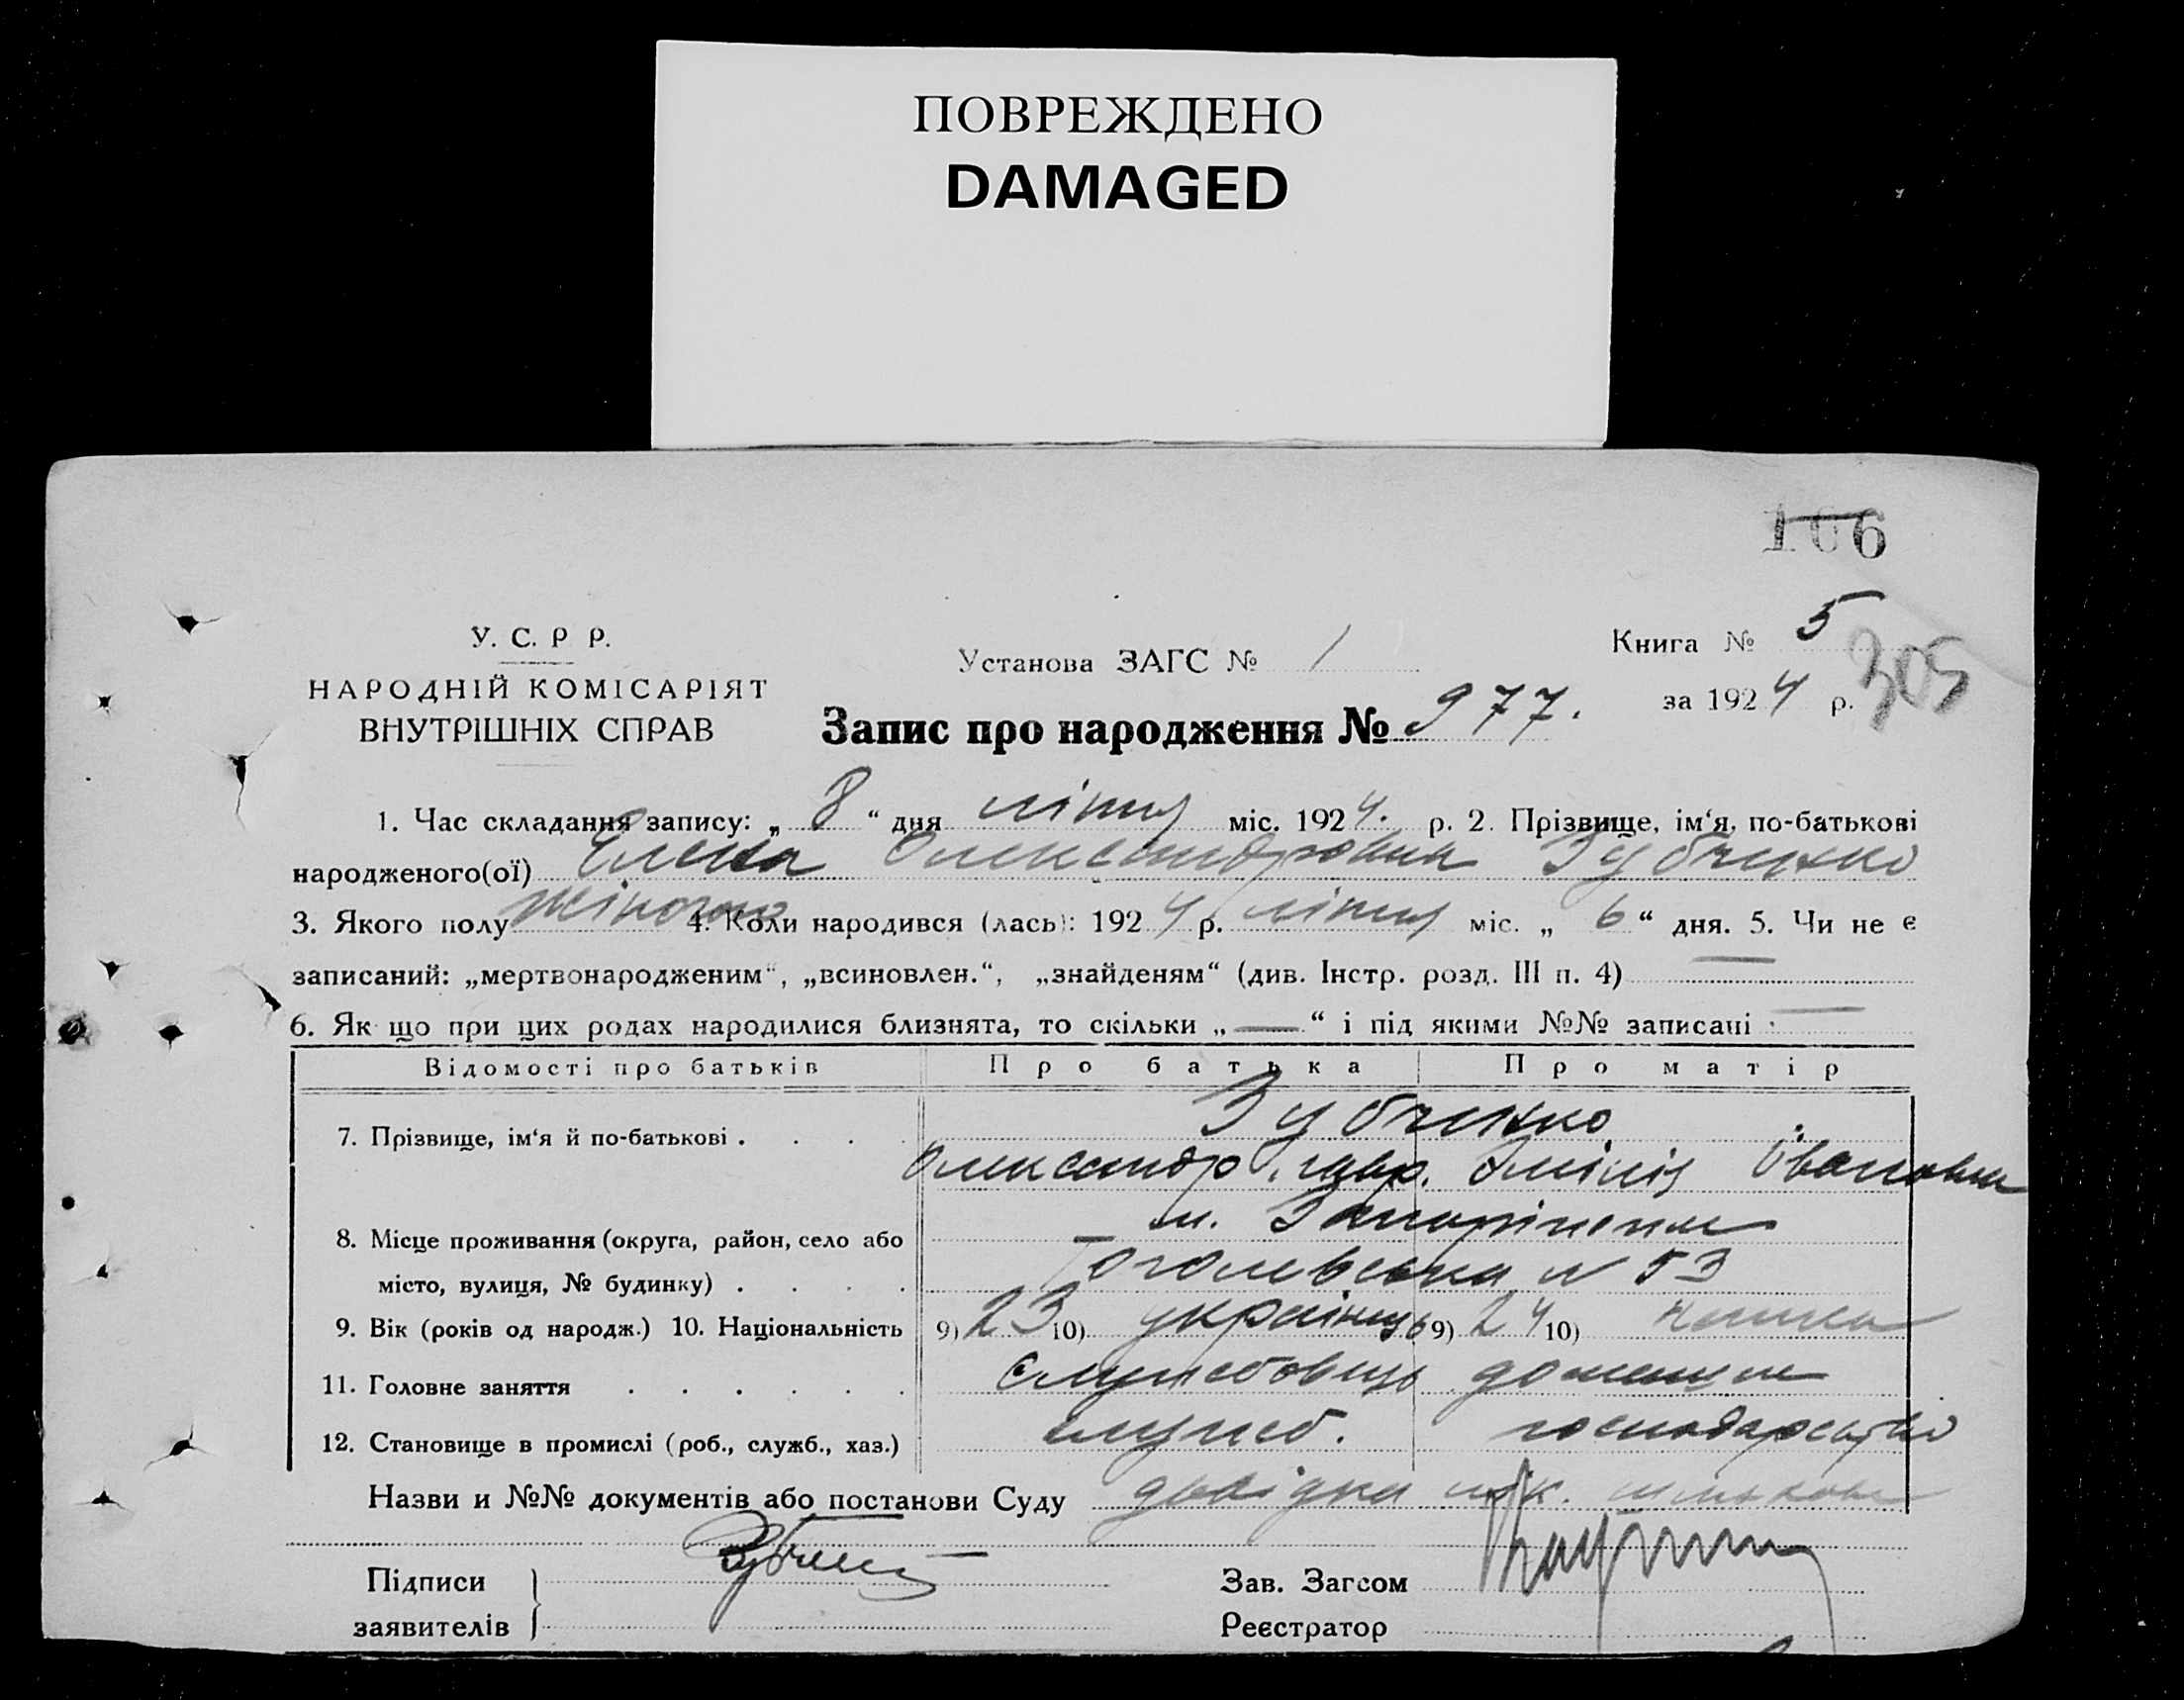 ПОВРЕЖДЕНО
DAMAGED
106
У. С. Р Р.
НАРОДНІЙ КОМІСАРІЯТ
ВНУТРІШНІХ СПРАВ
Установа ЗАГС № 1
Запис про народження № 977.
Книга № 5
305
за 1924 р.
1. Час складання запису: „ 8 “ дня липня міс. 1924. р. 2. Прізвище, ім‘я, по-батькові
народженого(ої) Елена Олександровна Зубченко
3. Якого полу жіночого 4. Коли народився (лась): 1924 р. липня міс. „ 6 “ дня. 5. Чи не є
записаний: „мертвонародженим“, „всиновлен.“, „знайденям“ (див. Інстр. розд. III п. 4) —
6. Як що при цих родах народилися близнята, то скільки „ — “ і під якими №№ записані —
Відомості про батьків Про батька Про матір
7. Прізвище, ім‘я й по-батькові . . . . Зубченко
Олександр Івановна
8. Місце проживання (округа, район, село або м.
місто, вулиця, № будинку) . . . . Гоголевська N 53
9. Вік (років од народж.) 10. Національність 9) 23 10) українець 9) 24 10)
11. Головне заняття . . . . . . Службовець домашнє
12. Становище в промислі (роб., служб., хаз.) служб. господарство
Назви и №№ документів або постанови Суду довідка
Підписи
заявителів
Зав. Загсом
Реєстратор